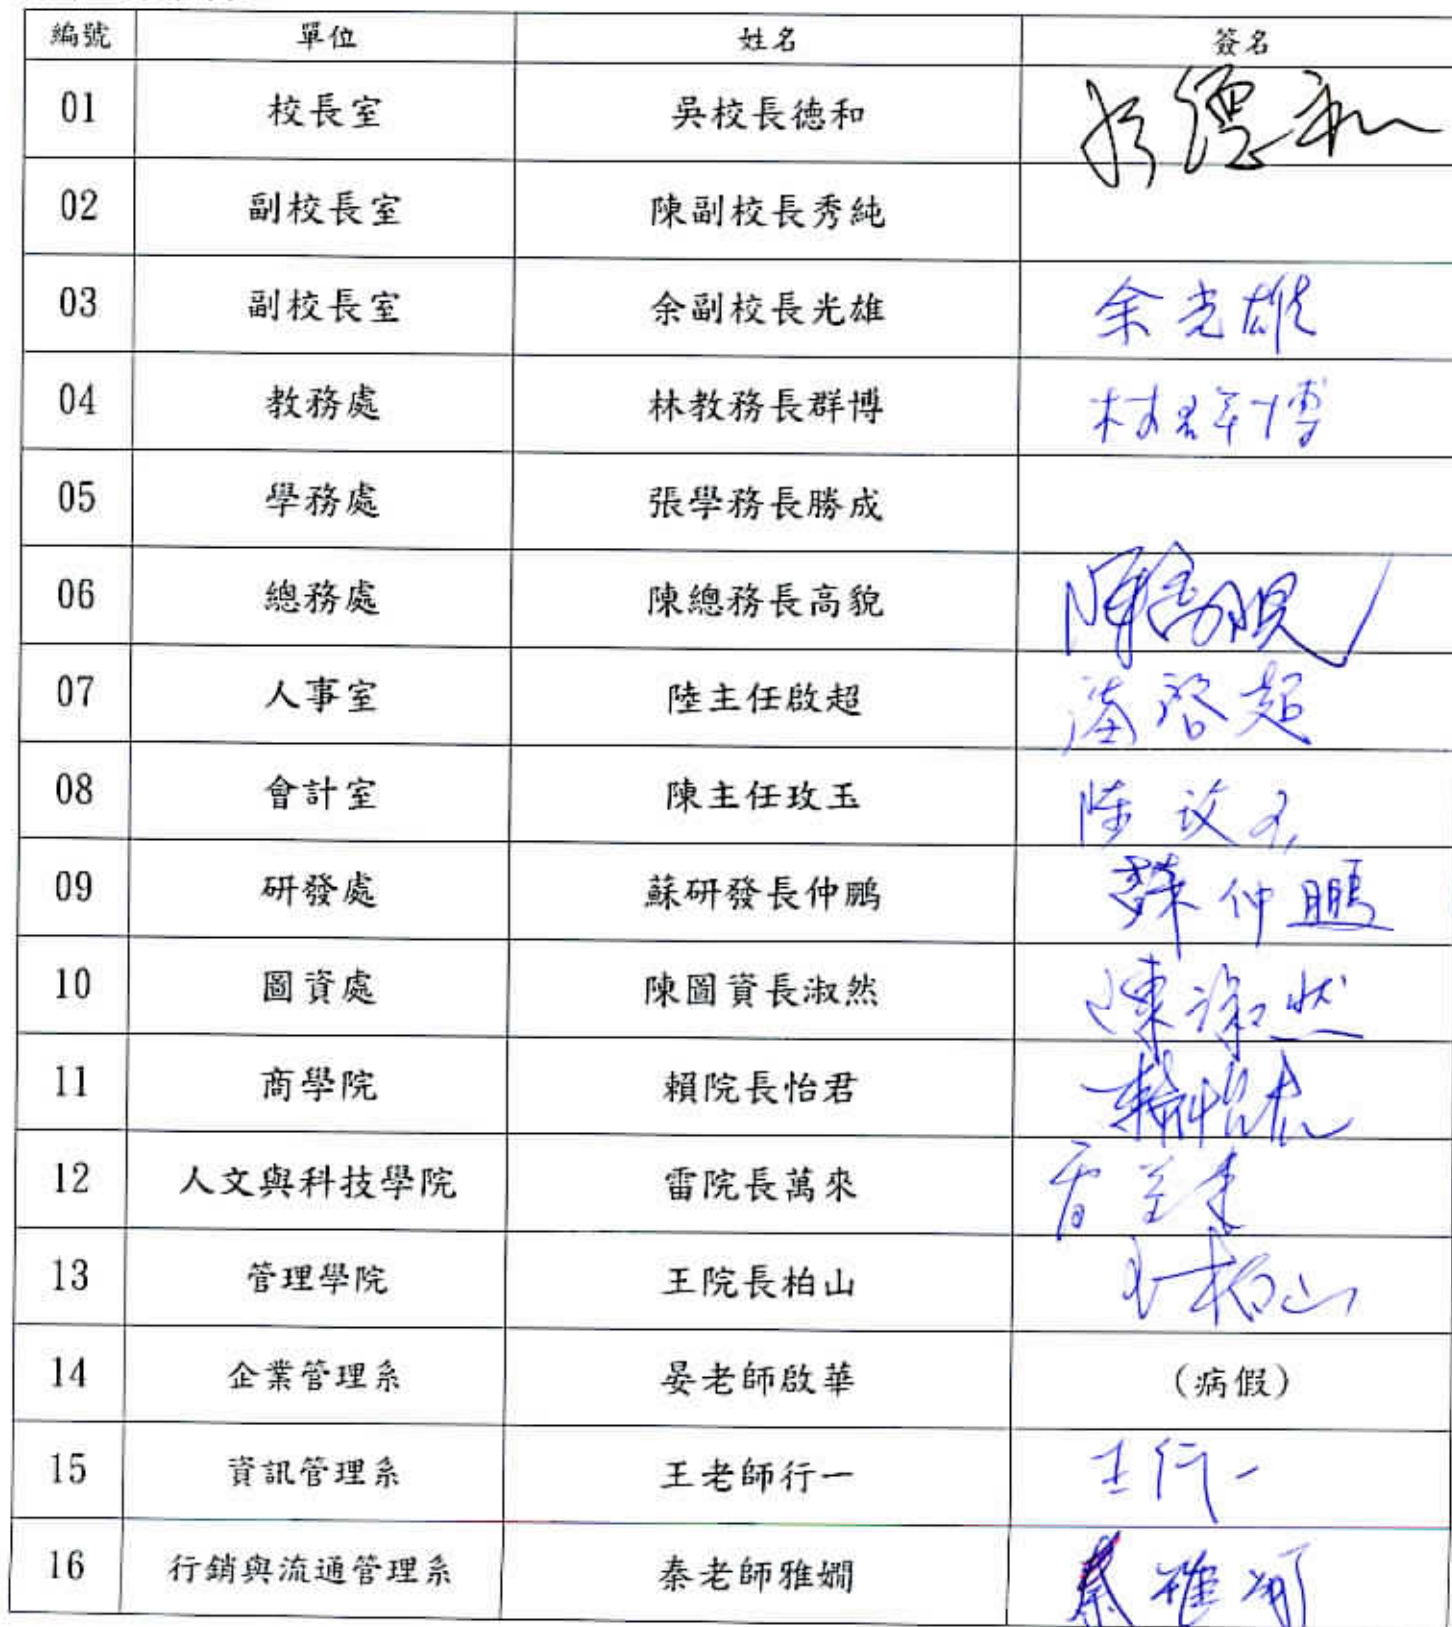 編號 單位 姓名 簽名
01 校長室 吳校長德和
02 副校長室 陳副校長秀純
03 副校長室 余副校長光雄 余光雄
04 教務處 林教務長群博 林群博
05 學務處 張學務長勝成
06 總務處 陳總務長高貌 陳高貌
07 人事室 陸主任啟超
08 會計室 陳主任玫玉 陳玫玉
09 研發處 蘇研發長仲鵬 蘇仲鵬
10 圖資處 陳圖資長淑然 陳淑然
11 商學院 賴院長怡君 賴怡君
12 人文與科技學院 雷院長萬來
13 管理學院 王院長柏山 王柏山
14 企業管理系 晏老師啟華 (病假)
15 資訊管理系 王老師行一 王行一
16 行銷與流通管理系 秦老師雅嫺 秦雅嫺